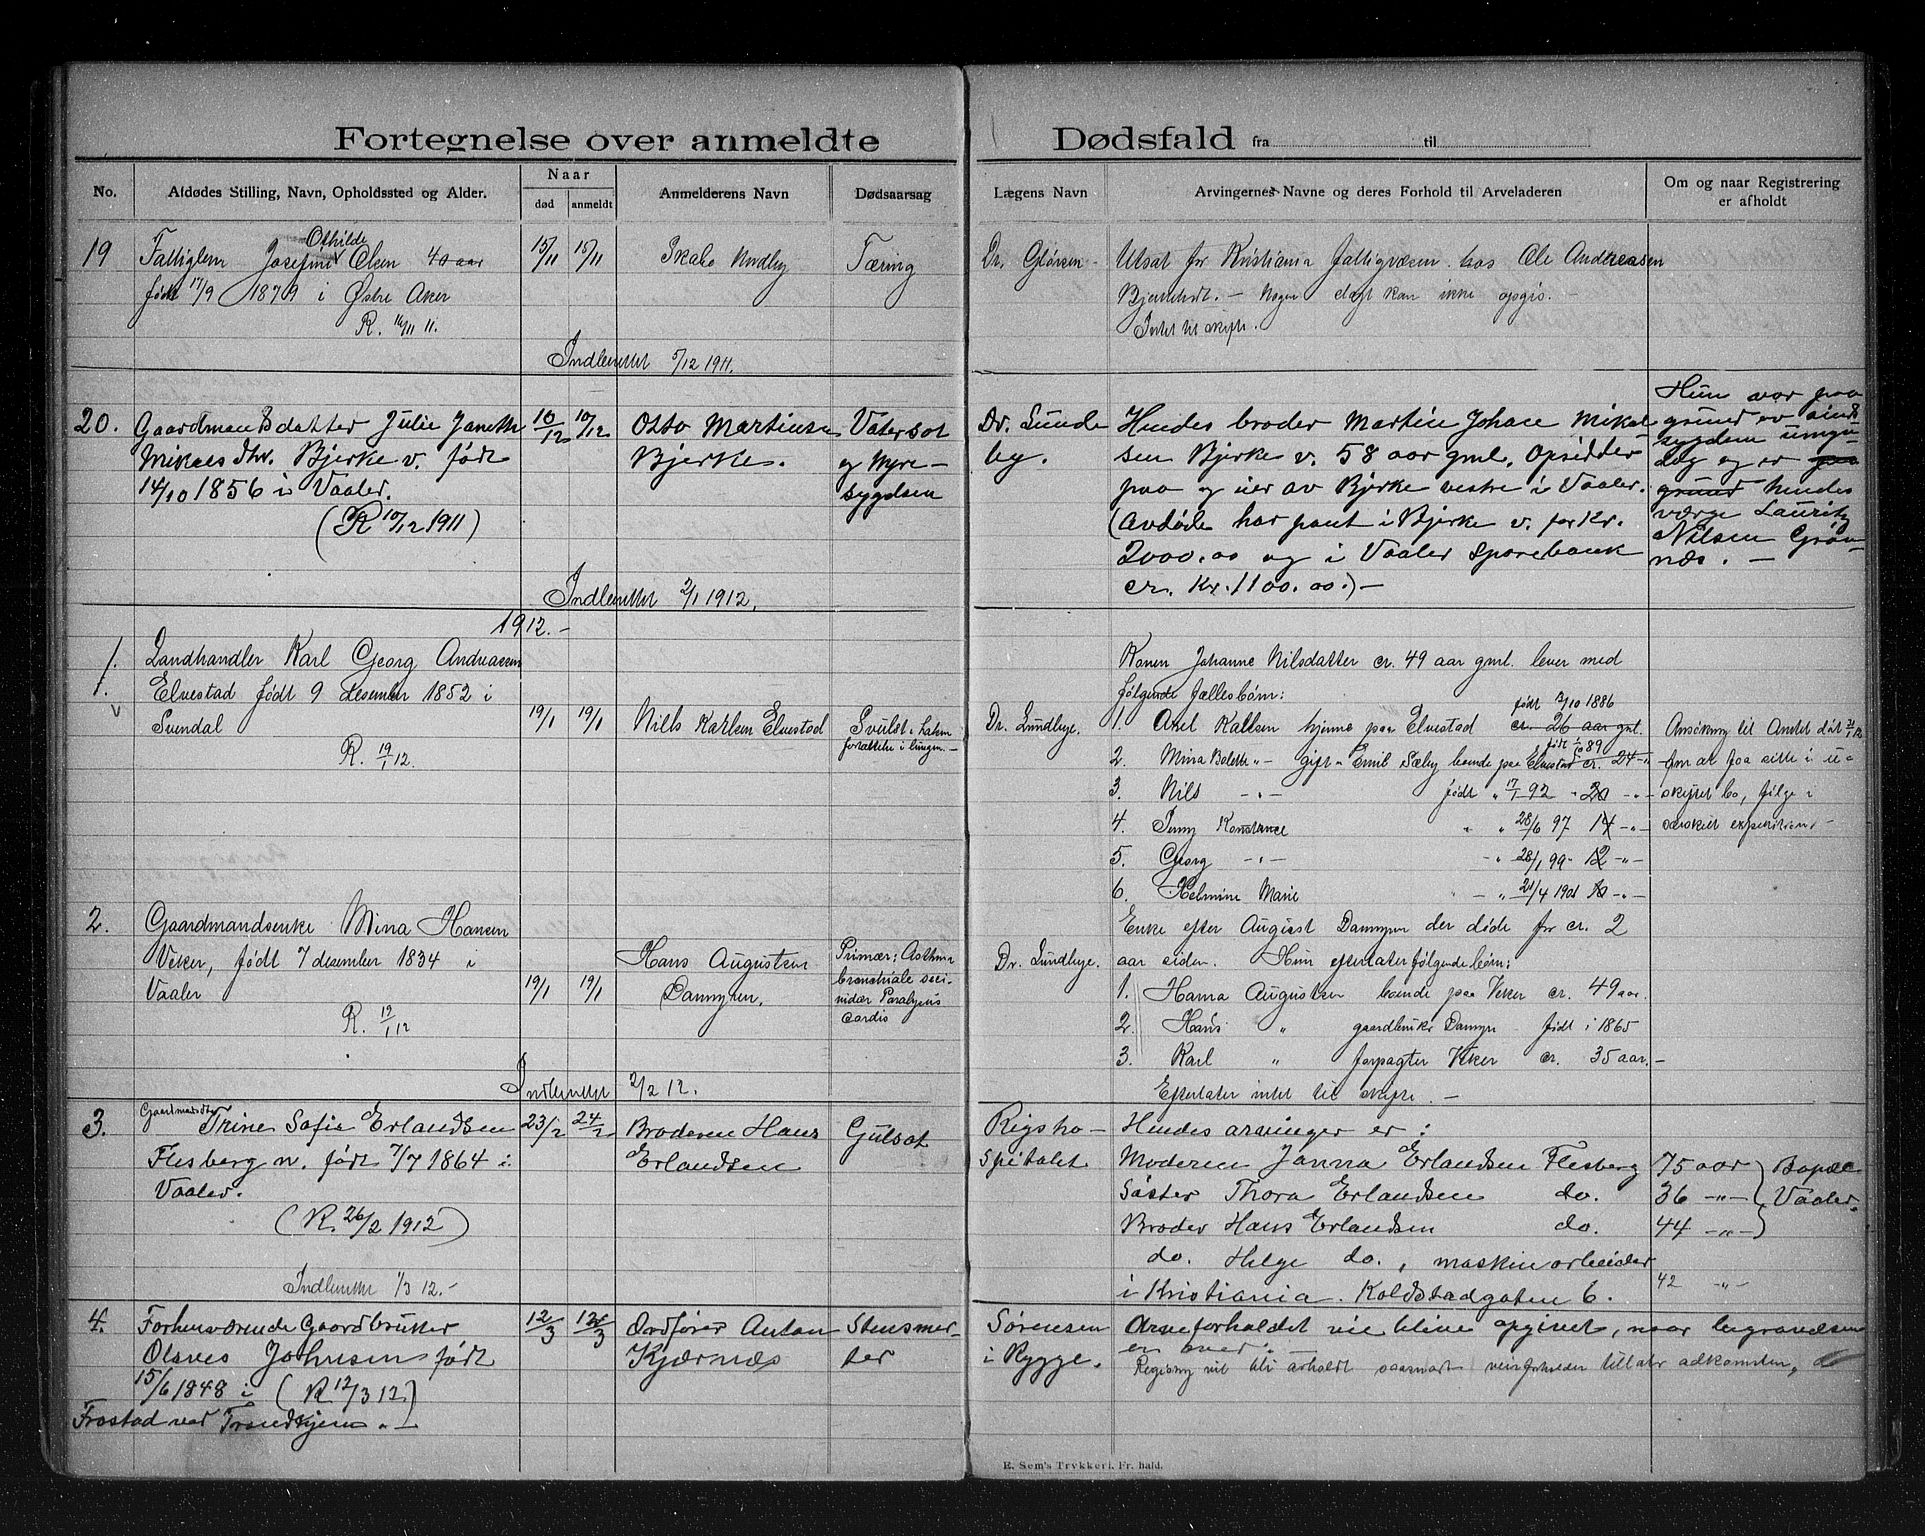 Fortegnelse over anmeldte Dødsfald fra til
No. Afdødes Stilling, Navn, Opholdssted og Alder. Naar død anmeldt Anmelderens Navn Dødsaarsag Lægens Navn Arvingernes Navne og deres Forhold til Arveladeren Om og naar Registrering er afholdt
19 Fattiglem Josefine Othilde Olsen 40 aar 15/11 15/11 Skabo Undby Tæring Dr. Glörsen Utsat for Kristiania fattigvæsen hos Ole Andreasen
født 17/9 1879 i Østre Aker Bjerkholt. – Nogen slegt kan ikke opgis. –
R. 16/11 11. Intet til skifte.
Indberettet 5/12 1911.
20. Gaardmandsdatter Julie Janette 10/12 10/12 Otto Martinsen Vatersot Dr. Lunde Hendes broder Martin Johan Mikal Hun var paa
Mikaels dtr. Bjerke v. født Bjerke. og Nyre- by. sen Bjerke v. 58 aar gml. Opsidder grund av sinds
14/10 1856 i Vaaler. sygdsen paa og eier av Bjerke vestre i Vaaler. sygdom umyn
(R 10/12 1911) (Avdøde har pant i Bjerke v. for Kr. dig og er paa
2000.00 og i Vaaler Sparebank grund hendes
cr. Kr. 1100.00.) – værge Lauritz
Nilsen Grøn
næs. –
Indberettet 2/1 1912.
1912. –
1. Landhandler Karl Georg Andreasen Konen Johanne Nilsdatter cr. 49 aar gml. lever med
Elvestad født 9 desember 1852 i følgende fællesbörn: født 2/10 1886
Svindal 19/1 19/1 Nils Karlsen Elvestad Svulst Dr. Lundbye. 1. Axel Karlsen hjemme paa Elvestad cr. 26 aar gml. Ansökning til Amtet dat
R. 19/1 12. 2. Mina Bolette -"- gift m Emil Sæby boende paa Elvestad cr. 24 -"- født 89 – om at faa sitte i u-
3. Nils -"- født " 17/1 92 " 20 -"- skiftet bo, følge i
4. Jenny Konstance " " 28/6 97 14 -"- særskilt expedition –
5. Georg -"- -" 28/1 99 12 -"-
6. Helmine Marie – " 21/4 1901 10 -"-
2. Gaardmandsenke Mina Hansen Enke efter August Damyren der døde for cr. 2
Veker, født 7 desember 1834 i Hans Augustsen Primær: Asthma Dr. Lundbye. aar siden. Hun efterlater følgende börn:
Vaaler 19/1 19/1 Damyren. bronchiale secundær Paralysis cordis 1. Hanna Augustsen boende paa Veker cr. 49 aar.
R. 19/1 12 2. Hans " gaardbruker Damyr født i 1865
3. Karl " forpagter Veker cr. 35 aar. –
Indberettet 2/2 12. Efterlater intet til skifte. –
3. Gaardmandsdtr Trine Sofie Erlandsen 23/2 24/2 Broderen Hans Gulsot Rigsho- Hendes arvinger er:
Flesberg n. født 7/7 1864 i Erlandsen spitalet Moderen Janna Erlandsen Flesberg 75 aar Bopæl
Vaaler. Søster Thora Erlandsen do. 36 -"- Vaaler.
(R. 26/2 1912) Broder Hans Erlandsen do. 44 -"-
do. Helge do., maskinarbeider
Indberettet 1/3 12. – i Kristiania. Koldstadgaten 6. 42 -"-
4. Forhenværende Gaardbruker 12/3 12/3 Ordfører Anton Stensmer- Sørensen Arveforholdet vil blive opgivet, naar begravelsen
Olaves Johnsen født Kjærnæs ter i Rygge. er over. –
15/6 1848 i (R 12/3 12) Registrering vil bli avholdt saasnart veirforholder tillater adkomsten,
Frostad ved Trondhjem. –
E. Sem's Trykkeri, Fr. hald.